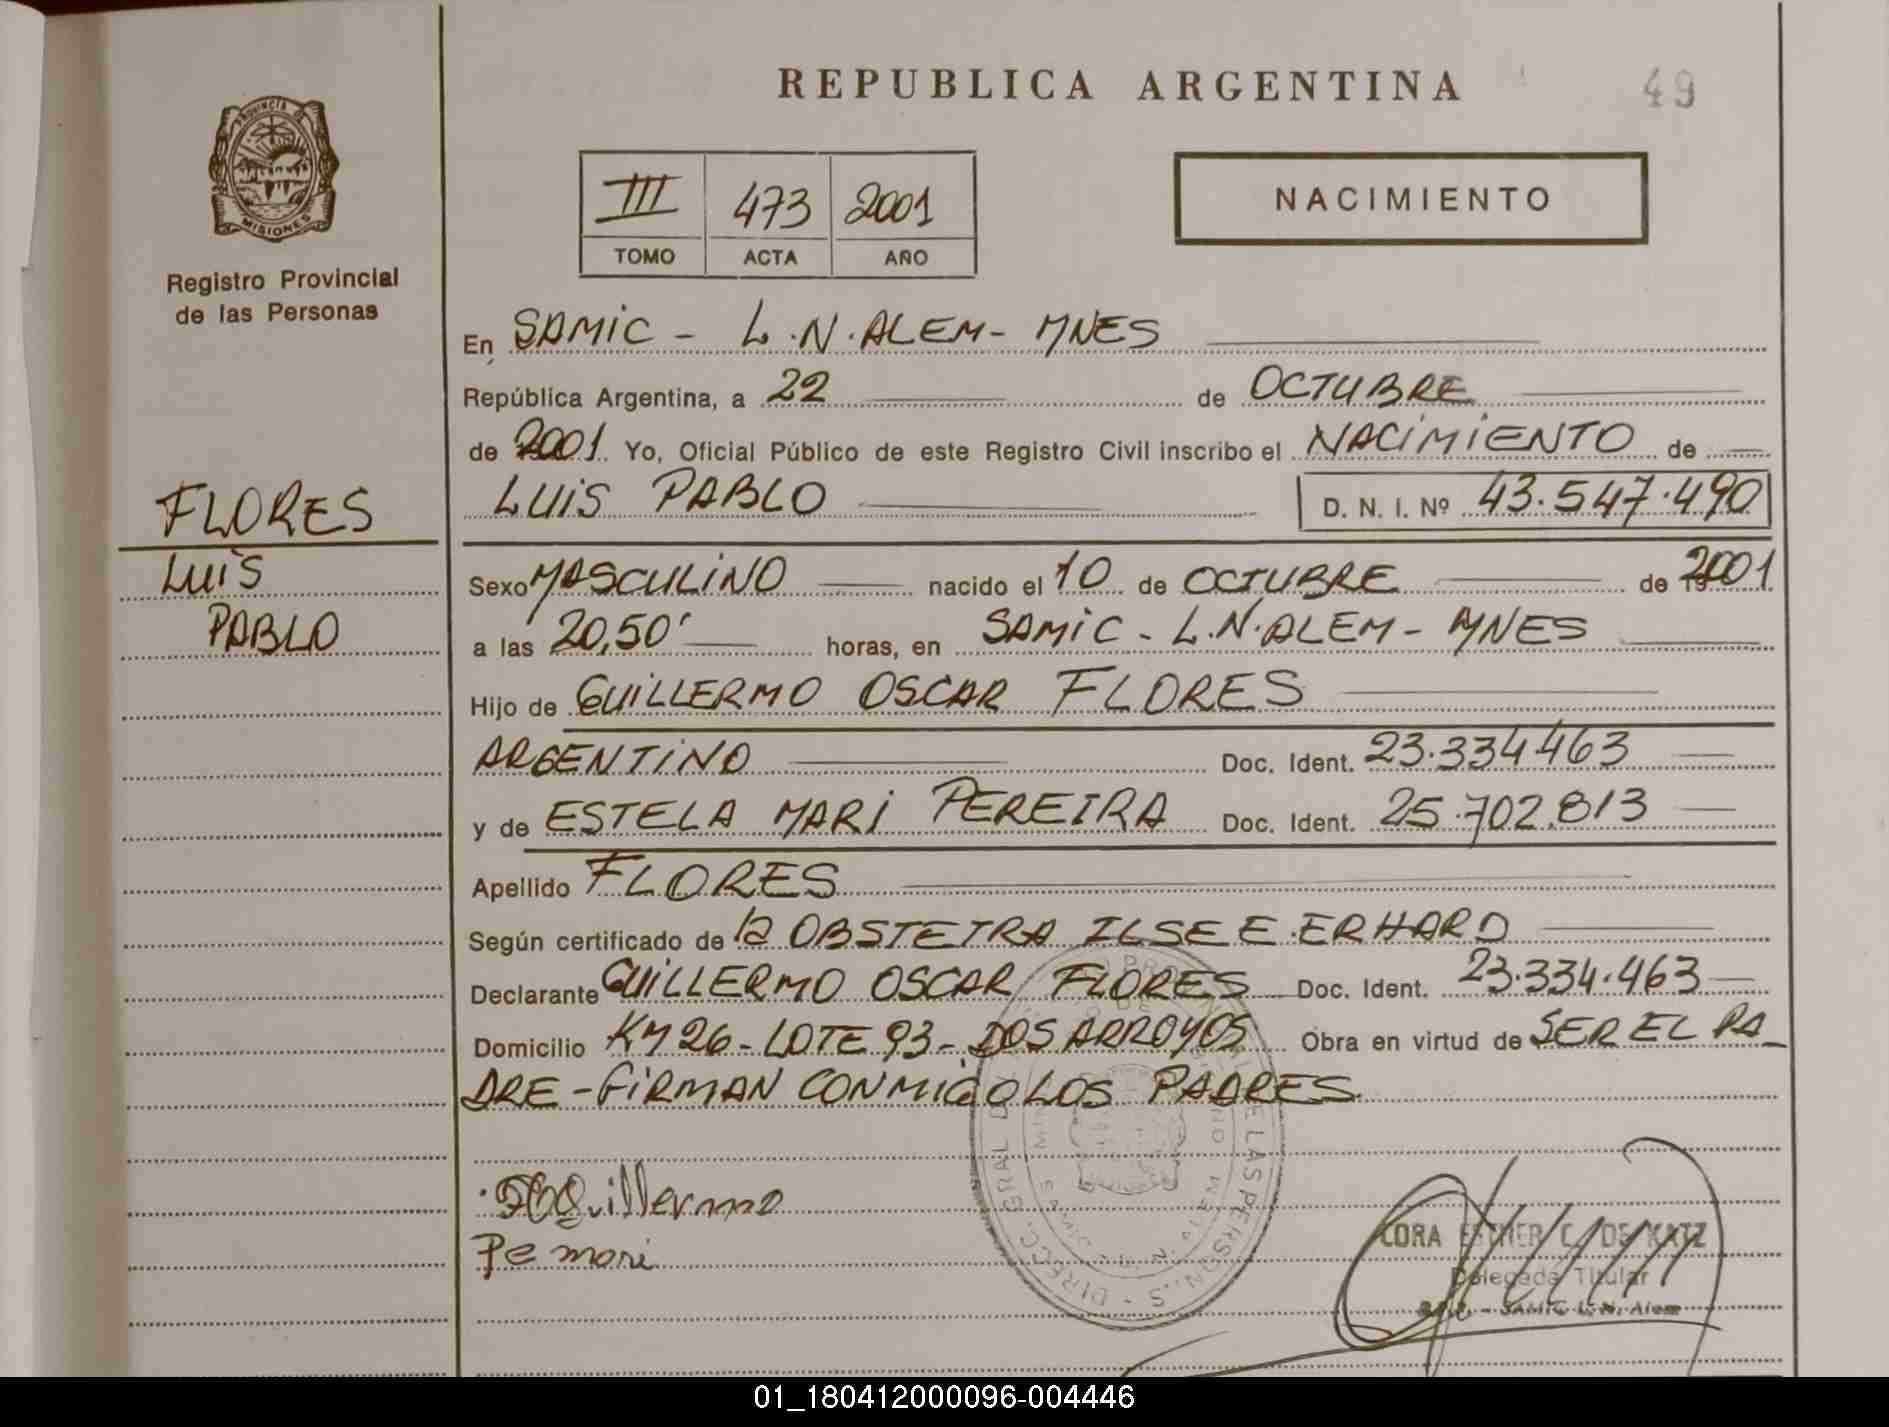 REPUBLICA ARGENTINA
49
PROVINCIA DE
MISIONES
Registro Provincial
de las Personas
III 473 2001
TOMO ACTA AÑO
NACIMIENTO
En SAMIC - L.N.ALEM- MNES
República Argentina, a 22 de OCTUBRE
de 2001 Yo, Oficial Público de este Registro Civil inscribo el NACIMIENTO de
LUIS PABLO D. N. I. Nº 43.547.490
FLORES
LUIS
PABLO
Sexo MASCULINO nacido el 10 de OCTUBRE de 2001
a las 20,50' horas, en SAMIC - L.N.ALEM - MNES
Hijo de GUILLERMO OSCAR FLORES
ARGENTINO Doc. Ident. 23.334.463
y de ESTELA MARI PEREIRA Doc. Ident. 25.702.813
Apellido FLORES
Según certificado de la OBSTETRA ILSE E. ERHARD
Declarante GUILLERMO OSCAR FLORES Doc. Ident. 23.334.463
Domicilio KM 26 - LOTE 93 - DOS ARROYOS Obra en virtud de SER EL PA_
DRE - FIRMAN CONMIGO LOS PADRES.
Guillermo
Pe mari
DIRECC. GRAL DE LAS PERSON
CORA ESTHER C. DE KATZ
Delegada Titular
SAMIC L.N. Alem
01_180412000096-004446